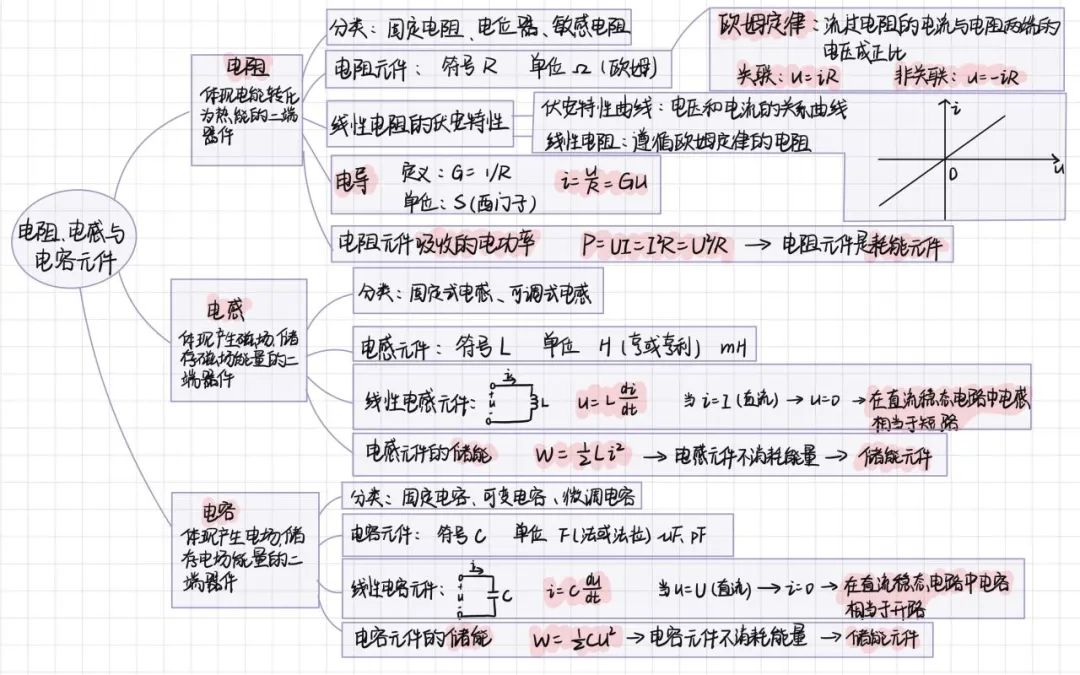 电阻、电感与
电容元件
电阻
体现电能转化
为热能的二端
器件
分类：固定电阻、电位器、敏感电阻
电阻元件：符号R 单位Ω（欧姆）
欧姆定律：流过电阻的电流与电阻两端的
电压成正比
关联：u=iR 非关联：u=-iR
线性电阻的伏安特性
伏安特性曲线：电压和电流的关系曲线
线性电阻：遵循欧姆定律的电阻
i
0
u
电导 定义：G=1/R i=u/R=Gu
单位：S（西门子）
电阻元件吸收的电功率 P=UI=I²R=U²/R → 电阻元件是耗能元件
电感
体现产生磁场、储
存磁场能量的二
端器件
分类：固定式电感、可调式电感
电感元件：符号L 单位 H（亨或亨利） mH
线性电感元件： i + u - L u=L di/dt 当i=I（直流）→u=0 →在直流稳态电路中电感
相当于短路
电感元件的储能 W=½Li² →电感元件不消耗能量→ 储能元件
电容
体现产生电场、储
存电场能量的二
端器件
分类：固定电容、可变电容、微调电容
电容元件：符号C 单位F（法或法拉）uF、pF
线性电容元件： i + u - C i=C du/dt 当u=U（直流）→i=0 →在直流稳态电路中电容
相当于开路
电容元件的储能 W=½CU² →电容元件不消耗能量 →储能元件